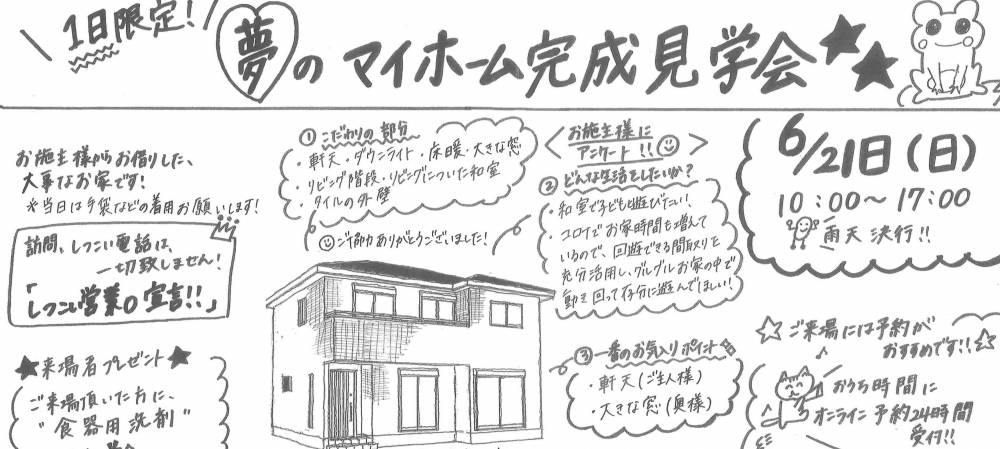 1日限定!
夢のマイホーム完成見学会
お施主様からお借りした、
大事なお家です!
※当日は手袋などの着用お願いします!
訪問、しつこい電話は、
一切致しません!
「しつこい営業0宣言!!」
★来場者プレゼント★
ご来場頂いた方に、
"食器用洗剤"
① こだわりの部分
・軒天・ダウンライト・床暖・大きな窓
・リビング階段・リビングについた和室
・タイルの外壁
ご協力ありがとうございました!
お施主様に
アンケート!!
② どんな生活をしたいか?
・和室で子どもと遊びたい!
・コロナでお家時間も増えて
いるので、回遊できる間取りを
充分活用し、グルグルお家の中で
動き回って存分に遊んでほしい!
③ 一番のお気入りポイント
・軒天(ご主人様)
・大きな窓(奥様)
6/21日(日)
10:00~17:00
雨天決行!!
☆ご来場には予約が
おすすめです!!☆
おうち時間に
オンライン予約24時間
受付!!